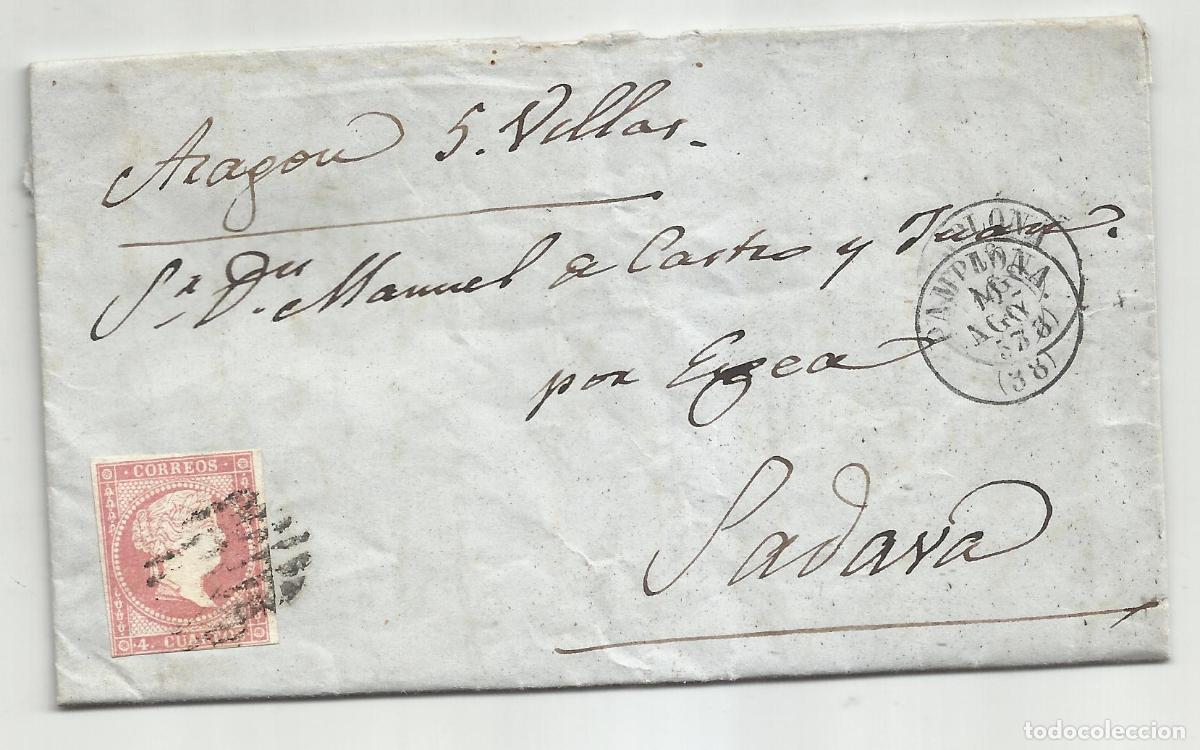 Aragon 5. Villas.
Sr. Dn. Manuel de Castro y
por Egea
Sadava
PAMPLONA.
16
AGO
(38)
CORREOS
4. CUA
todocoleccion